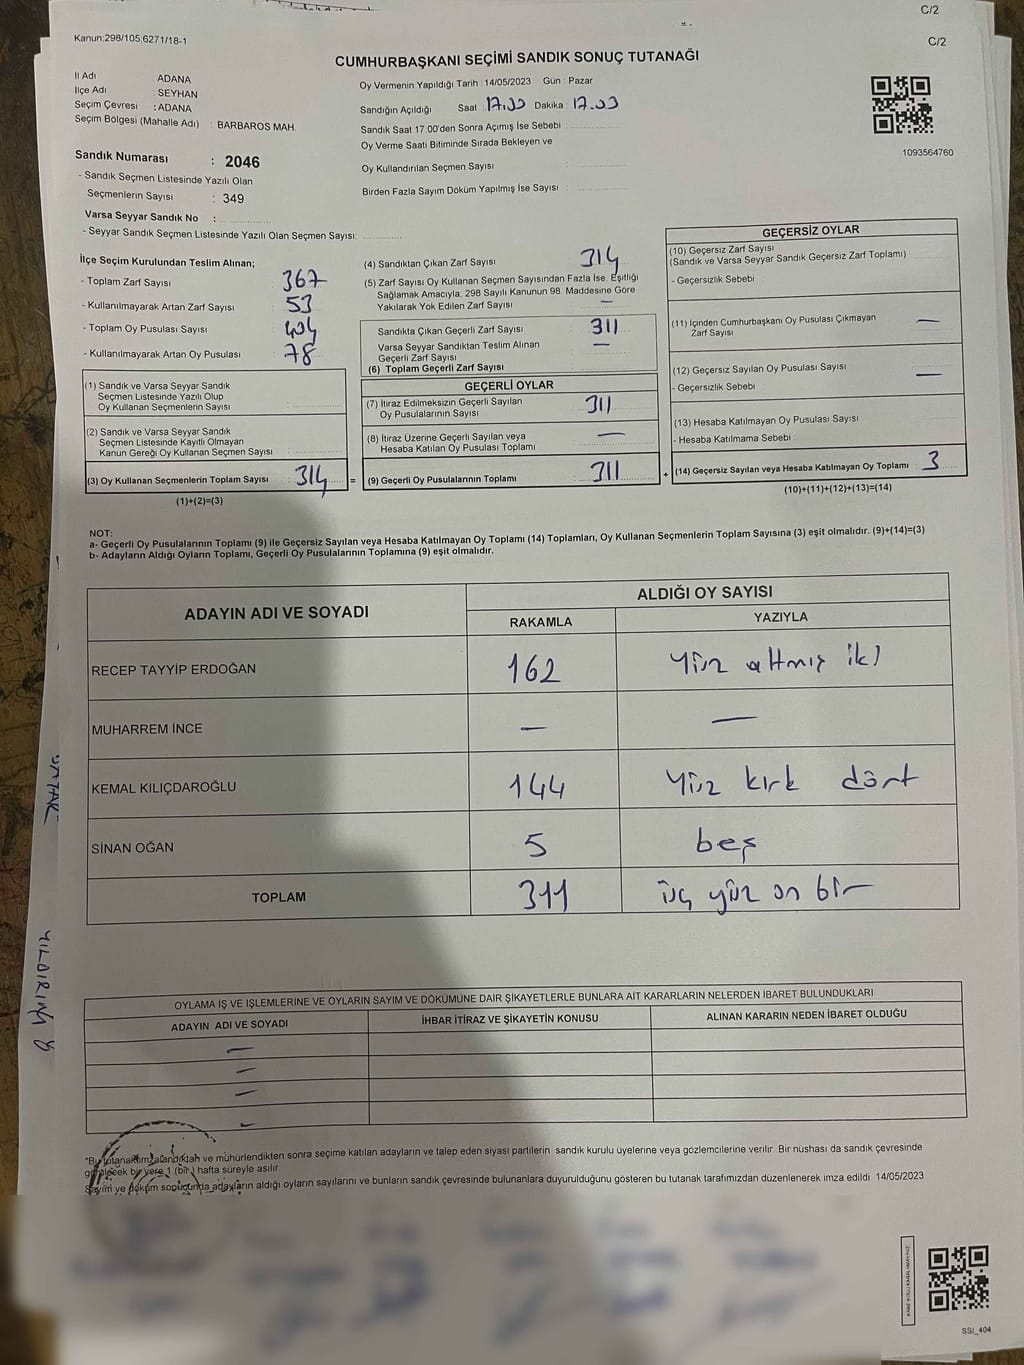 C/2
C/2
Kanun;298/105,6271/18-1
CUMHURBAŞKANI SEÇİMİ SANDIK SONUÇ TUTANAĞI
İl Adı ADANA
İlçe Adı SEYHAN
Seçim Çevresi : ADANA
Seçim Bölgesi (Mahalle Adı) : BARBAROS MAH.
Oy Vermenin Yapıldığı Tarih : 14/05/2023 Gün : Pazar
Sandığın Açıldığı Saat Dakika :
Sandık Saat 17.00'den Sonra Açımış İse Sebebi
Oy Verme Saati Bitiminde Sırada Bekleyen ve
Oy Kullandırılan Seçmen Sayısı
Birden Fazla Sayım Döküm Yapılmış İse Sayısı :
1093564760
Sandık Numarası : 2046
- Sandık Seçmen Listesinde Yazılı Olan
Seçmenlerin Sayısı : 349
Varsa Seyyar Sandık No :
- Seyyar Sandık Seçmen Listesinde Yazılı Olan Seçmen Sayısı:
İlçe Seçim Kurulundan Teslim Alınan;
- Toplam Zarf Sayısı 367
- Kullanılmayarak Artan Zarf Sayısı 53
- Toplam Oy Pusulası Sayısı
- Kullanılmayarak Artan Oy Pusulası 78
(1) Sandık ve Varsa Seyyar Sandık
Seçmen Listesinde Yazılı Olup
Oy Kullanan Seçmenlerin Sayısı
(2) Sandık ve Varsa Seyyar Sandık
Seçmen Listesinde Kayıtlı Olmayan
Kanun Gereği Oy Kullanan Seçmen Sayısı
(3) Oy Kullanan Seçmenlerin Toplam Sayısı : 314 =
(1)+(2)=(3)
(4) Sandıktan Çıkan Zarf Sayısı 314
(5) Zarf Sayısı Oy Kullanan Seçmen Sayısından Fazla İse, Eşitliği
Sağlamak Amacıyla, 298 Sayılı Kanunun 98. Maddesine Göre
Yakılarak Yok Edilen Zarf Sayısı —
Sandıkta Çıkan Geçerli Zarf Sayısı 311
Varsa Seyyar Sandıktan Teslim Alınan
Geçerli Zarf Sayısı —
(6) Toplam Geçerli Zarf Sayısı
GEÇERLİ OYLAR
(7) İtiraz Edilmeksizin Geçerli Sayılan
Oy Pusulalarının Sayısı 311
(8) İtiraz Üzerine Geçerli Sayılan veya
Hesaba Katılan Oy Pusulası Toplamı —
(9) Geçerli Oy Pusulalarının Toplamı 311 +
GEÇERSİZ OYLAR
(10) Geçersiz Zarf Sayısı
(Sandık ve Varsa Seyyar Sandık Geçersiz Zarf Toplamı)
- Geçersizlik Sebebi
(11) İçinden Cumhurbaşkanı Oy Pusulası Çıkmayan
Zarf Sayısı —
(12) Geçersiz Sayılan Oy Pusulası Sayısı
- Geçersizlik Sebebi —
(13) Hesaba Katılmayan Oy Pusulası Sayısı
- Hesaba Katılmama Sebebi
(14) Geçersiz Sayılan veya Hesaba Katılmayan Oy Toplamı 3
(10)+(11)+(12)+(13)=(14)
NOT:
a- Geçerli Oy Pusulalarının Toplamı (9) ile Geçersiz Sayılan veya Hesaba Katılmayan Oy Toplamı (14) Toplamları, Oy Kullanan Seçmenlerin Toplam Sayısına (3) eşit olmalıdır. (9)+(14)=(3)
b- Adayların Aldığı Oyların Toplamı, Geçerli Oy Pusulalarının Toplamına (9) eşit olmalıdır.
ADAYIN ADI VE SOYADI ALDIĞI OY SAYISI
RAKAMLA YAZIYLA
RECEP TAYYİP ERDOĞAN 162 Yüz altmış iki
MUHARREM İNCE — —
KEMAL KILIÇDAROĞLU 144 Yüz kırk dört
SİNAN OĞAN 5 beş
TOPLAM 311 üç yüz on bir
OYLAMA İŞ VE İŞLEMLERİNE VE OYLARIN SAYIM VE DÖKÜMÜNE DAİR ŞİKAYETLERLE BUNLARA AİT KARARLARIN NELERDEN İBARET BULUNDUKLARI
ADAYIN ADI VE SOYADI İHBAR İTİRAZ VE ŞİKAYETİN KONUSU ALINAN KARARIN NEDEN İBARET OLDUĞU
—
—
—
—
ve mühürlendikten sonra seçime katılan adayların ve talep eden siyasi partilerin sandık kurulu üyelerine veya gözlemcilerine verilir. Bir nüshası da sandık çevresinde
bir yere 1 (bir) hafta süreyle asılır.
Sayım ve döküm sonucunda adayların aldığı oyların sayılarını ve bunların sandık çevresinde bulunanlara duyurulduğunu gösteren bu tutanak tarafımızdan düzenlenerek imza edildi. 14/05/2023
SSI_404